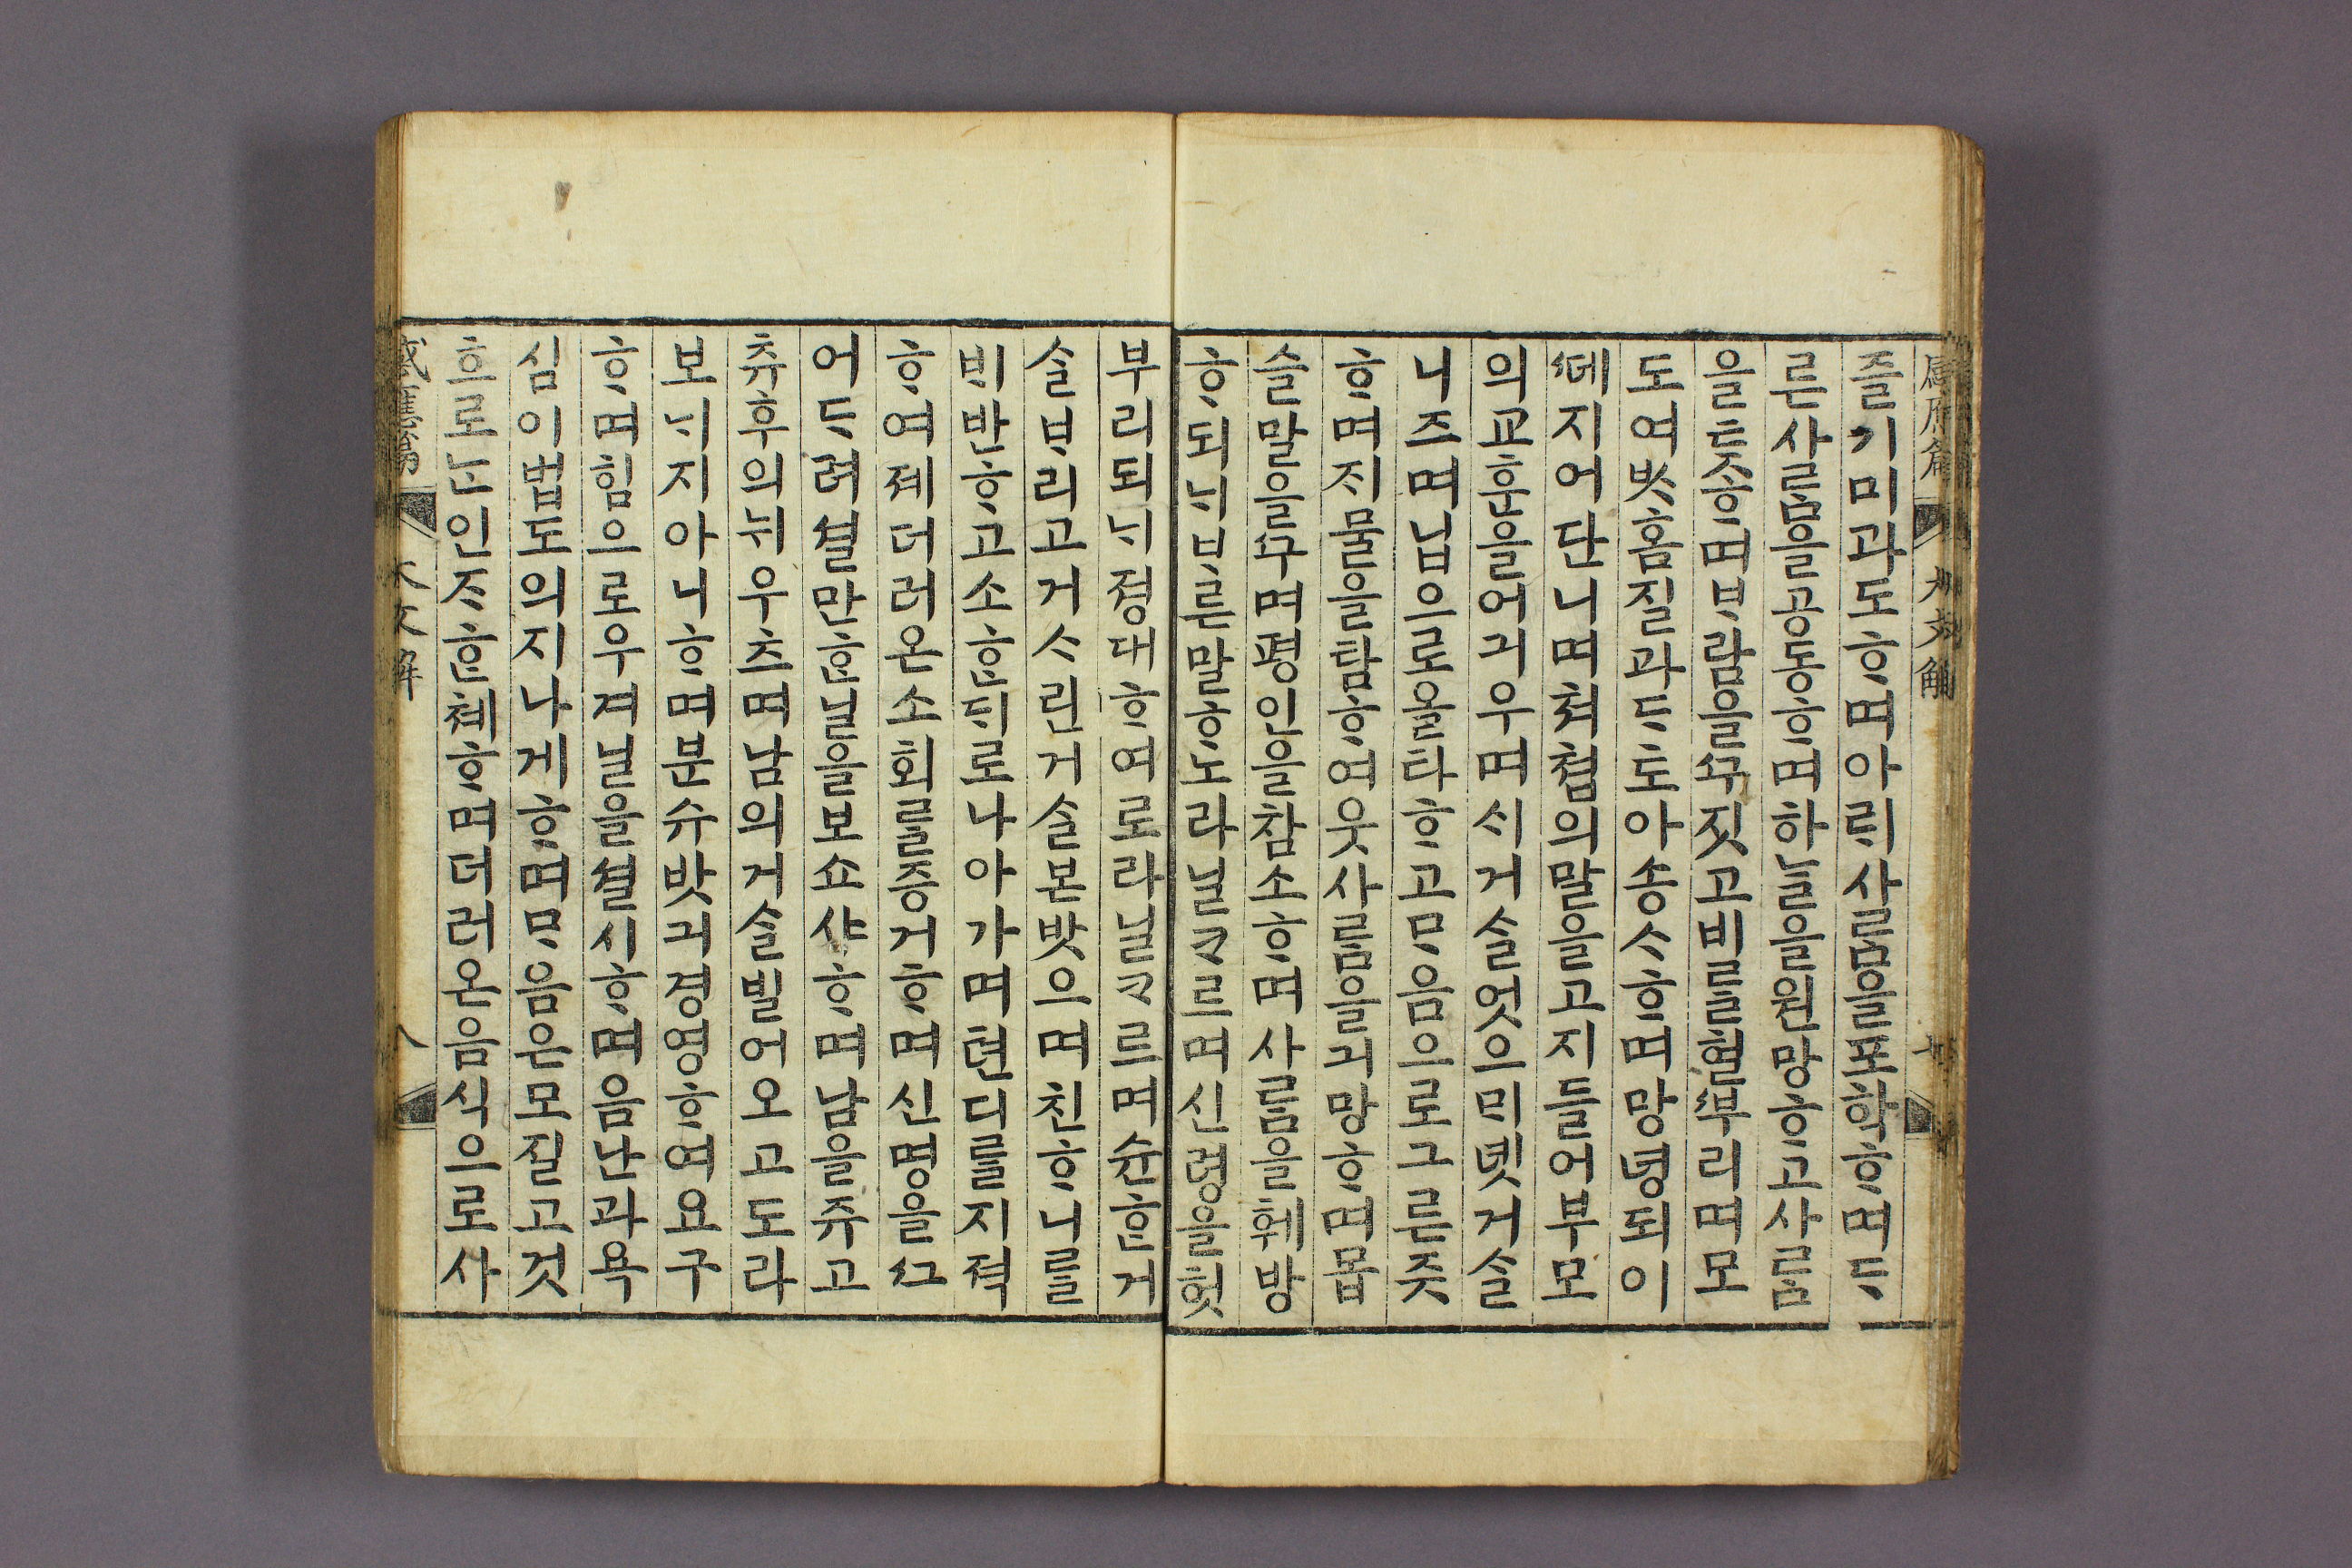 즐기미과도ᄒᆞ며아ᄅᆡ사ᄅᆞᆷ을포학ᄒᆞ며ᄃᆞ
른사ᄅᆞᆷ을공동ᄒᆞ며하ᄂᆞᆯ을원망ᄒᆞ고사ᄅᆞᆷ
을ᄐᆞᆺᄒᆞ며ᄇᆞ람을ᄭᅮ짓고비를ᄭᅮ리며모
도여ᄡᅡ홈질과ᄃᆞ토아송ᄉᆞᄒᆞ며망녕되이
ᄯᅦ지어ᄃᆞᆫ니며쳐쳡의말을고지들어부모
의교훈을어긔우며ᄉᆡ거ᄉᆞᆯ엇으ᄆᆡ녯거ᄉᆞᆯ
니즈며닙으로올타ᄒᆞ고ᄆᆞ음으로그르줏
ᄒᆞ며ᄌᆡ물을탐ᄒᆞ여웃사ᄅᆞᆷ을긔망ᄒᆞ며몹
슬말을ᄭᅮ며평인을참소ᄒᆞ며사ᄅᆞᆷ을훼방
ᄒᆞ되ᄂᆡ바른말ᄒᆞ노라닐ᄏᆞᄅᆞ며신령을헛
부리되ᄂᆡ졍ᄃᆡᄒᆞ여로라닐ᄏᆞᄅᆞ며슌ᄒᆞᆫ거
ᄉᆞᆯᄇᆞ리고거ᄉᆞ린거ᄉᆞᆯ본밧으며친ᄒᆞ니를
ᄇᆡ반ᄒᆞ고소ᄒᆞᆫᄃᆡ로나아가며텬디를지쳑
ᄒᆞ여쳐더러온소회를증거ᄒᆞ며신명을ᄭᅳ
어ᄃᆞ려셜만ᄒᆞᆫ닐을보쇼샤ᄒᆞ며남을주고
츄후의뉘우츠며남의거ᄉᆞᆯ빌어오고도라
보ᄂᆡ지아니ᄒᆞ며분슈밧긔경영ᄒᆞ여요구
ᄒᆞ며힘으로우져닐을셜시ᄒᆞ며음난과욕
심이법도의지나게ᄒᆞ며ᄆᆞ음은모질고것
ᄎᆞ로ᄂᆞᆫ인ᄌᆞᄒᆞᆫ쳬ᄒᆞ며더러온음식으로사